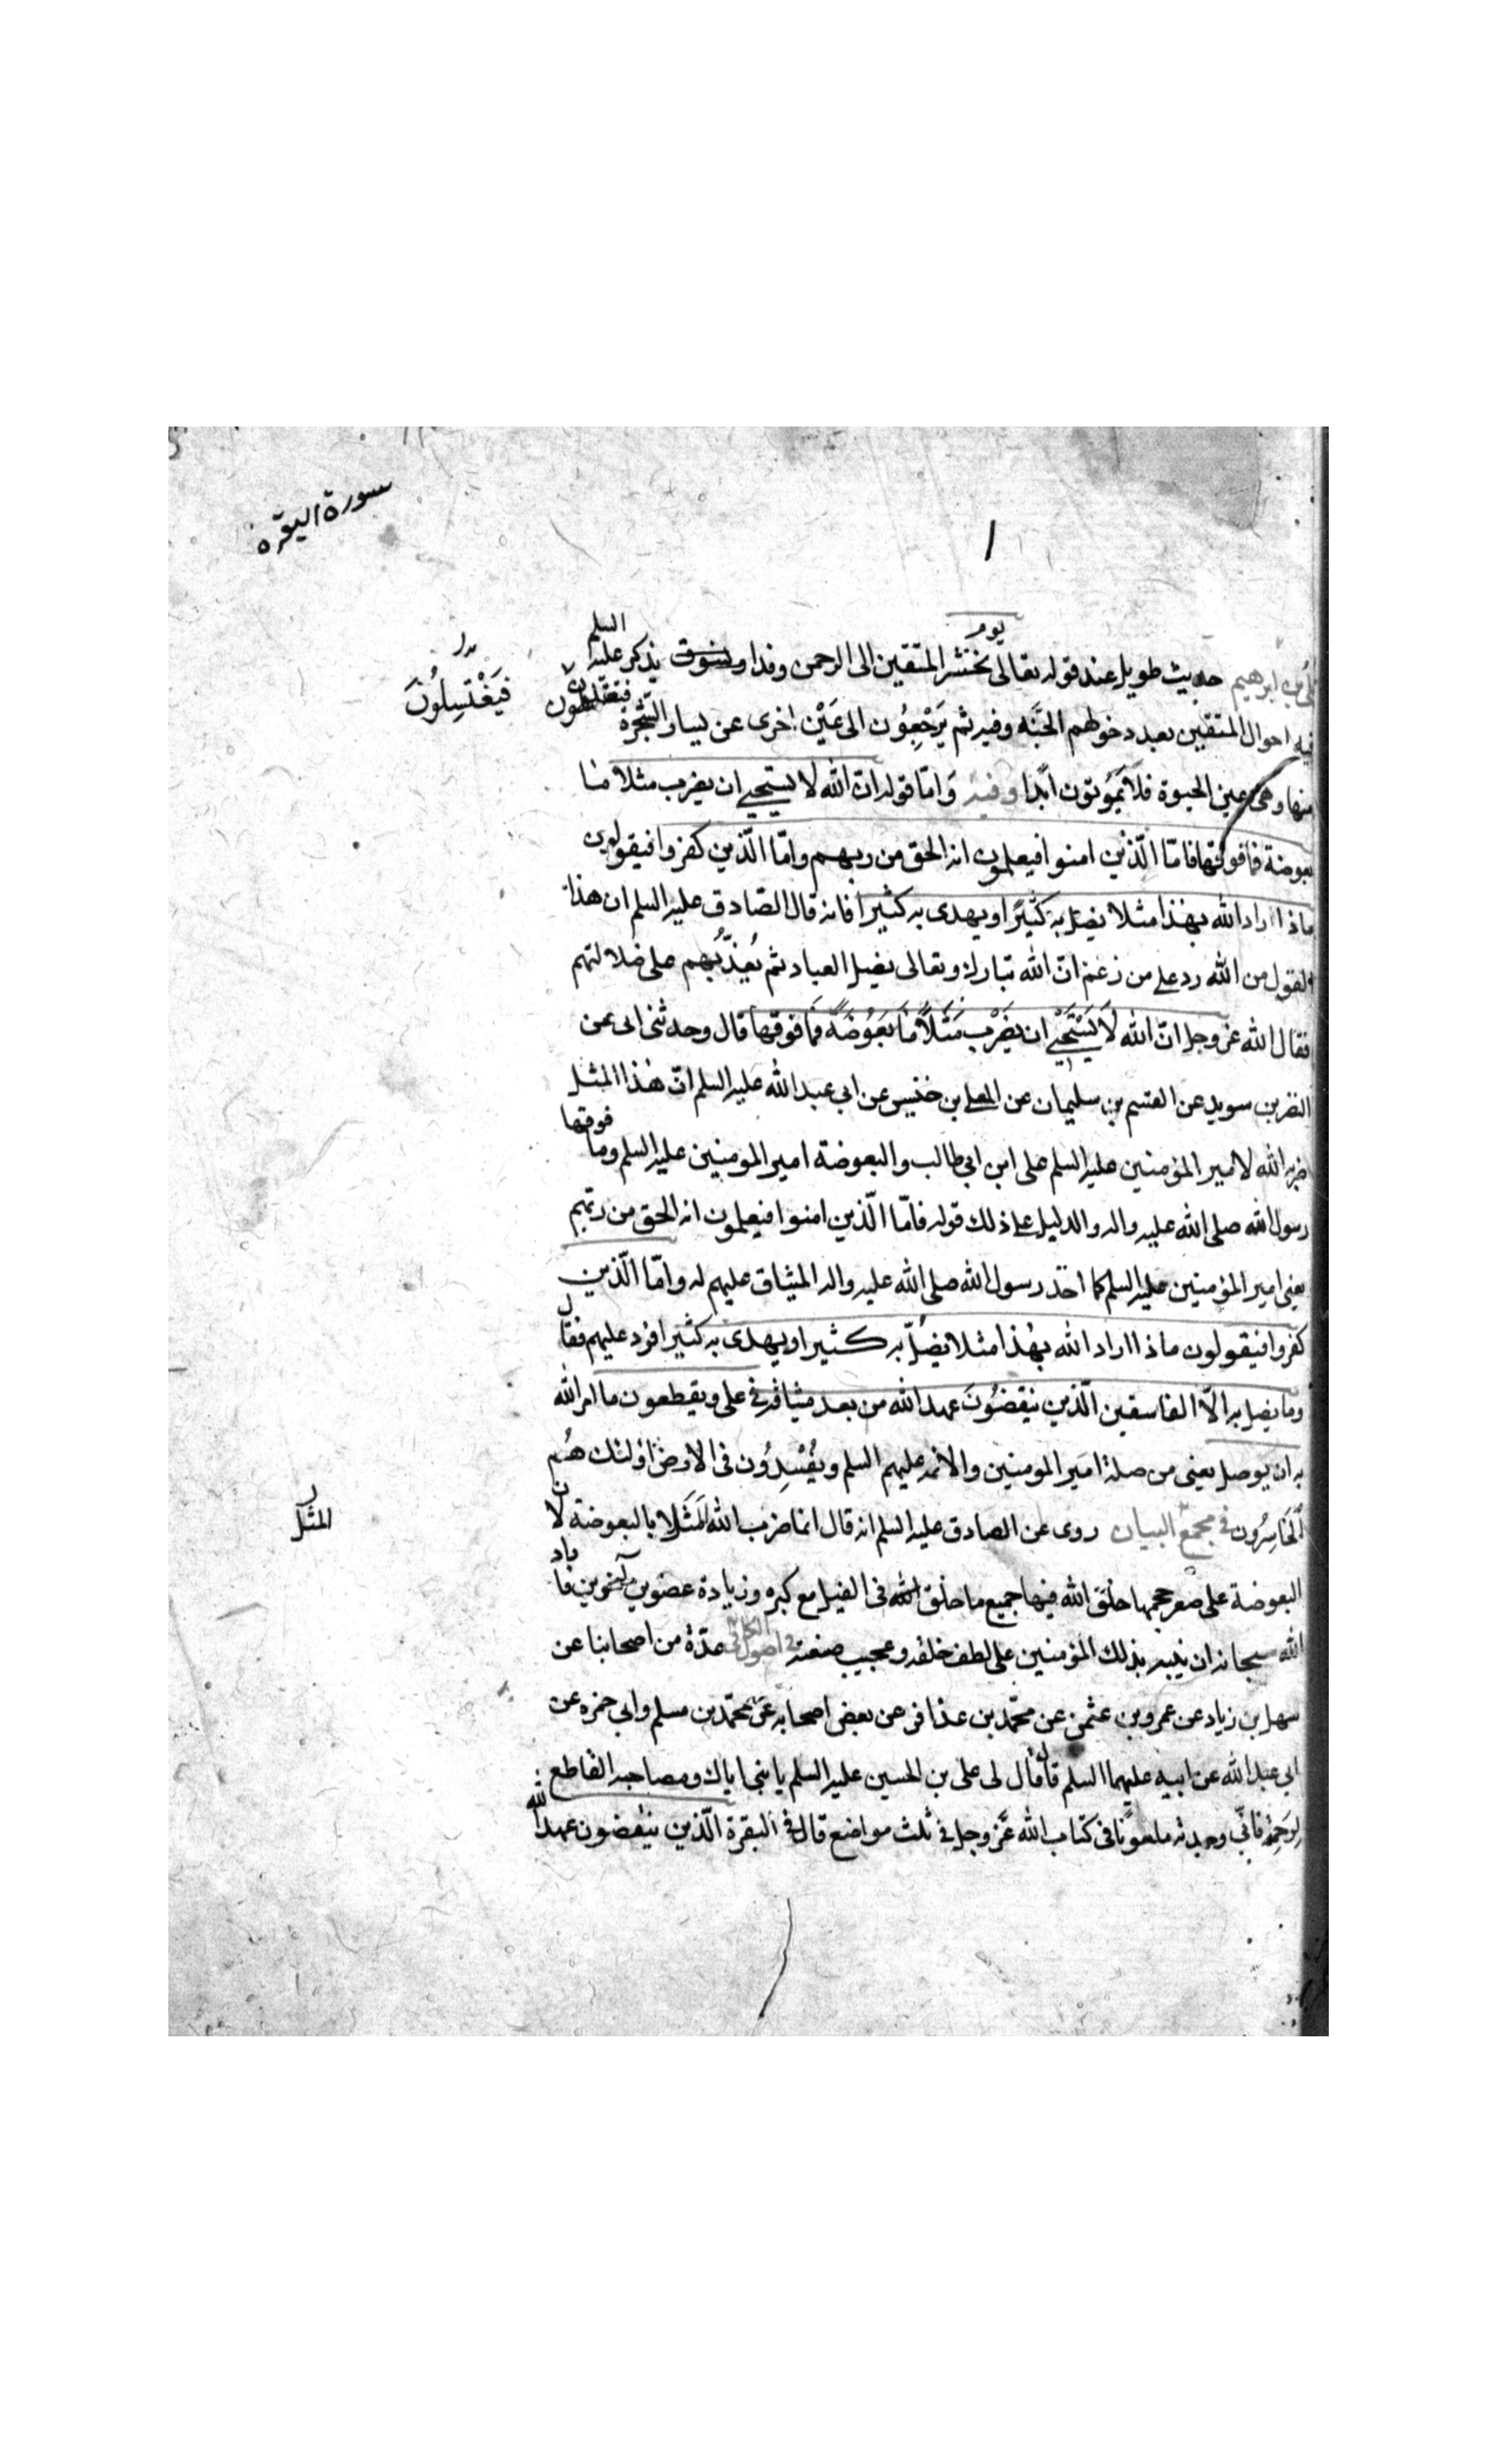 سورة البقرة
١
علي بن ابرهيم حديث طويل عند قوله تعالى يوم نحشر المتقين الى الرحمن وفدا ونسوق يذكر عليه السلم
فيه احوال المتقين بعد دخولهم الجنّة وفيه ثم يَرْجِعُون الى عَيْنٍ اخرى عن يسار الشّجرة
فَيَغْتَسِلُونَ
منها وهى عين الحيوة فلا يَمُوتون ابدًا وفيه وَامّا قوله انّ الله لا يستحيي ان يضرب مثلا ما
بعوضة فما فوقها فامّا الّذين امنوا فيعلمون انه الحق من ربهم وامّا الّذين كفروا فيقولون
ماذا اراد الله بهذا مثلا يضل به كثيرًا ويهدى به كثيرا فانه قال الصّادق عليه السلم ان هذا
القول من الله رد على من زعم انّ الله تبارك وتعالى يضل العباد ثم يُعذّبُهم على ضلالتهم
فقال الله عزّ وجل انّ الله لَا يَسْتَحْيِي ان يَضْرِب مَثَلًا مَا بَعُوضَةً فَمَا فوقها قال وحدثنى ابى عن
النضر بن سويد عن القسم بن سليمان عن المعلى بن خنيس عن ابي عبد الله عليه السلم انّ هذا المثل
ضربه الله لامير المؤمنين عليه السلم على ابن ابي طالب والبعوضة امير المومنين عليه السلم وما فوقها
رسول الله صلى الله عليه واله والدليل على ذلك قوله فامّا الّذين امنوا فيعلمون انه الحق من ربّهم
يعني امير المؤمنين عليه السلم كما اخذ رسول الله صلى الله عليه واله الميثاق عليهم له وامّا الّذين
كفروا فيقولون ماذا اراد الله بهذا مثلا يضلّ به كثيرا ويهدى به كثيرا فرد عليهم فقال
وما يضل به الّا الفاسقين الّذين ينقضُونَ عهد الله من بعد ميثاقه في على ويقطعون ما امر الله
به ان يوصل يعنى من صلة امير المومنين والائمة عليهم السلم ويُفْسِدُون فى الارض اولئك هُم
اَلْخَاسِرُون في مجمع البيان روى عن الصادق عليه السلم انه قال انما ضرب الله المَثَل بالبعوضة لان
المثل
البعوضة على صغر حجمها خلق الله فيها جميع ما خلق الله فى الفيل مع كبره وزيادة عضوين آخرين فاراد
الله سبحانه ان ينبه بذلك المؤمنين على لطف خلقه وعجيب صنعته في اصول الكافي عدّة من اصحابنا عن
سهل بن زياد عن عمرو بن عثمن عن محمّد بن عذافر عن بعض اصحابه عن محمّد بن مسلم وابي حمزة عن
ابي عبد الله عن ابيه عليهما السلم قال قال لى على بن الحسين عليه السلم يا بنى اياك ومصاحبه القاطع
لرَحِمه فانّي وجدته ملعونًا فى كتاب الله عَزّ وجل في ثلث مواضع قال في البقرة الّذين ينقضون عهد الله